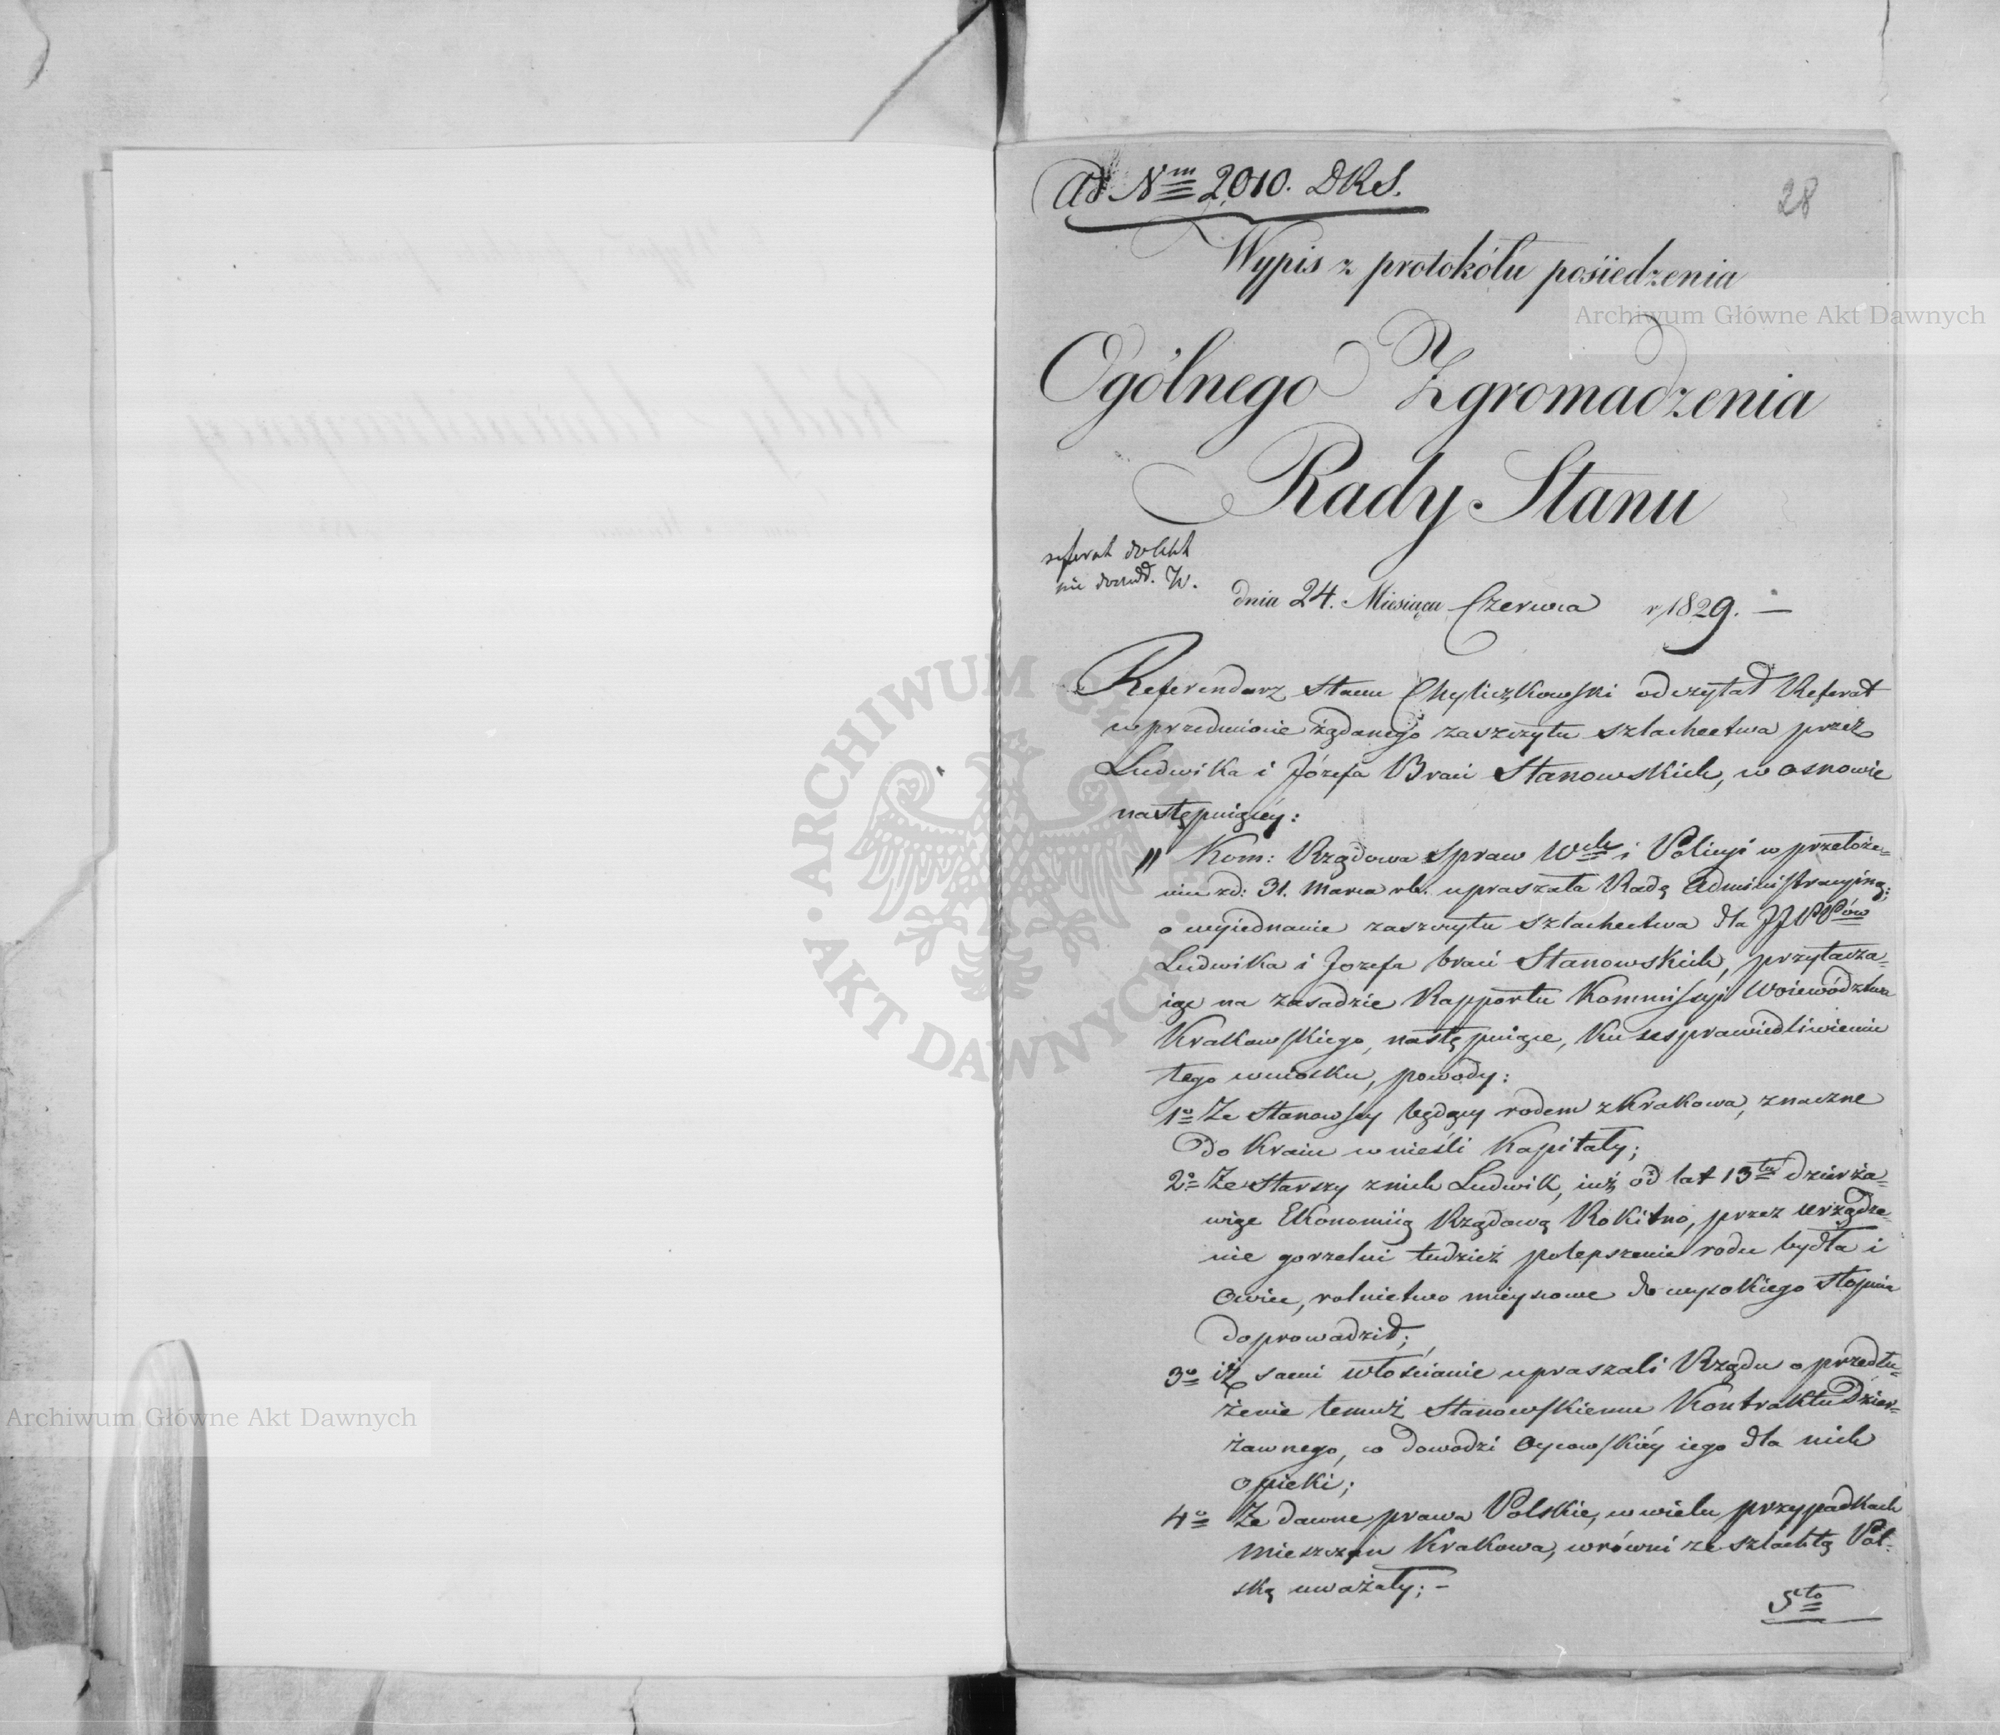 Ad Nm 2010. DKS.
28
Wypis z protokółu posiedzenia
Ogólnego Zgromadzenia
Rady Stanu
dnia 24. Miesiąca Czerwca r 1829. —
Referendarz Stanu Chyliczkowski odczytał Referat
w przedmiocie żądanego zaszczytu szlachectwa przez
Ludwika i Józefa Braci Stanowskich, w osnowie
następuiącéy:
" Kom: Rządowa Spraw Wch i Policyi w przełoże=
niu zd: 31. Marca rb. upraszała Radę Administracyiną;
o wyiednanie zaszczytu szlachectwa dla JJPPów
Ludwika i Jozefa braci Stanowskich, przytacza=
iąc na zasadzie Rapportu Kommissyi Woiewództwa
Krakowskiego, następuiące, ku usprawiedliwieniu
tego wniosku, powody:
1o Ze Stanowscy będący rodem z Krakowa, znaczne
do Kraiu wnieśli Kapitały;
2o Ze starszy z nich Ludwik, iuż od lat 13tu dzierża=
wiąc Ekonomiią Rządową Rokitno, przez urządze=
nie gorzelni tudzież polepszenie rodu bydła i
Owiec, rolnictwo mieyscowe do wysokiego stopnia
doprowadził;
3o iż sami włościanie upraszali Rządu o przedłu=
żenie temuż Stanowskiemu Kontraktu Dzier=
żawnego, co dowodzi Oycowskiéy iego dla nich
opieki;
4o Ze dawne prawa Polskie, w wielu przypadkach
Mieszczan Krakowa, wrówni ze szlachtą Pol=
ską uważały; –
5to
Archiwum Główne Akt Dawnych
Archiwum Główne Akt Dawnych
ARCHIWUM GŁÓWNE AKT DAWNYCH